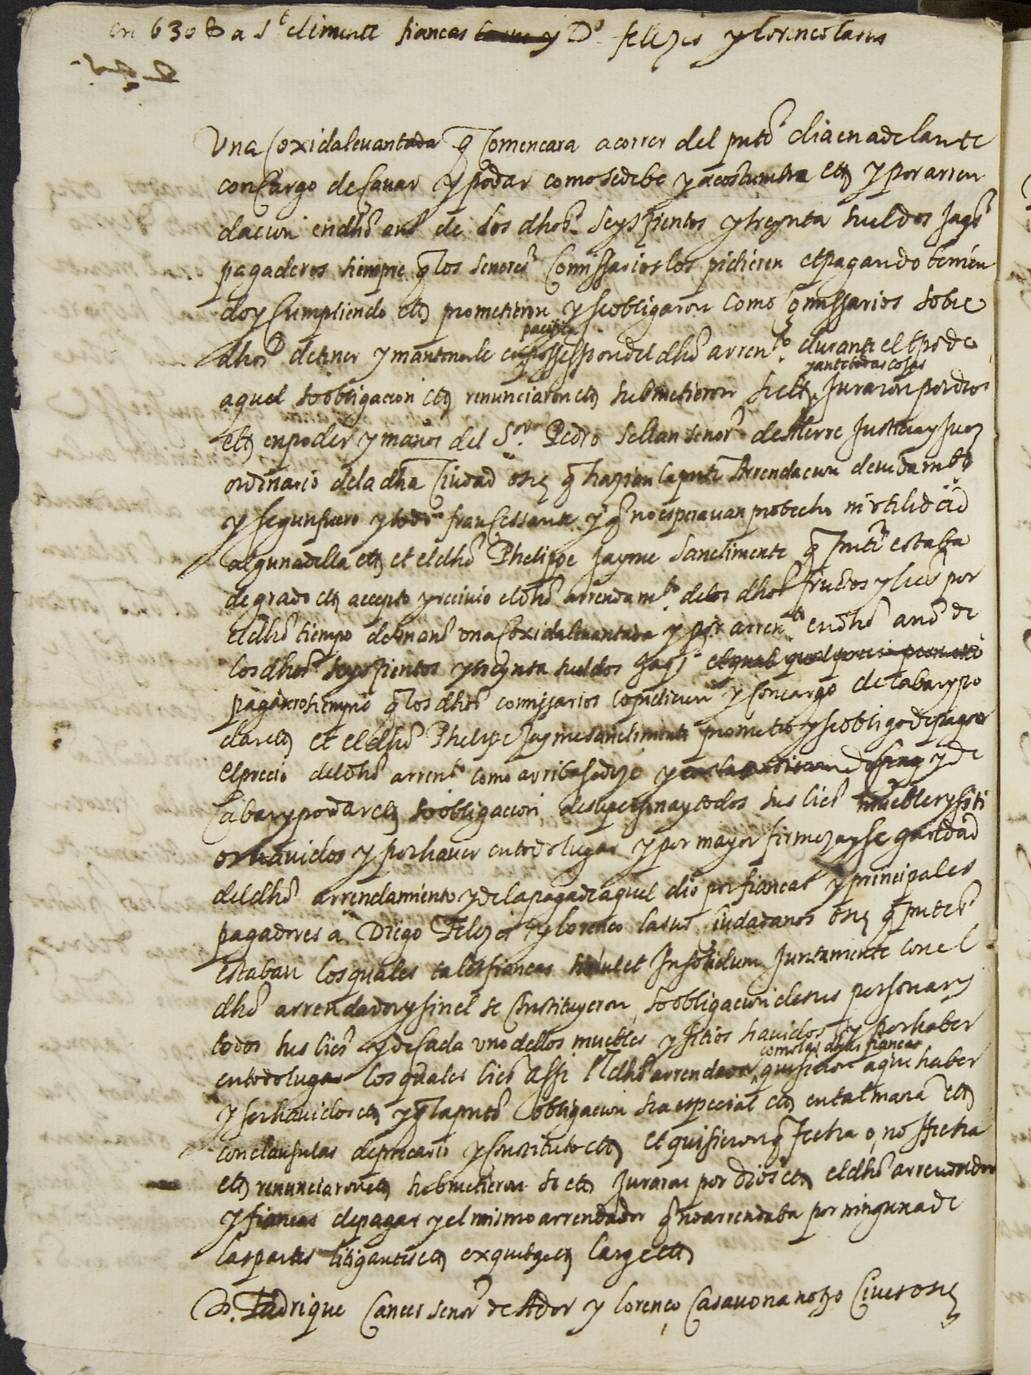 en 630 ẞ a St climente fiancas D.º felizes y lorenco lasus
Una Coxida levantada q̃ Comencara a correr del pnte dia en adelante
con Cargo de Cavar y podar como se debe y acostumbra etc y por arren
dacion en dho año de los dhos seyscientos y treynta sueldos Jaqs
pagaderos siempre q̃ los senores Comissarios los pidieren et pagando tenien
do y Cumpliendo etc prometieron y se obligaron como Comissarios sobre
dhos de tener y mantenerle en possession pacifica del dho arrento durante el tpo de
aquel so obligacion etc renunciaron etc submetieron se etc Juraron por dios
yante todas cosas
etc en poder y manos del Sor Pedro Sellan senor de Alerre Justicia y Juez
ordinario de la dha Ciudad q̃ hazian la pnte Arrendacion
y segun fuero y todo fraucessante y q̃ no esperavan probecho ni utilidad
alguna della etc et el dho Phelippe Jayme Sanclimente q̃ pnte estaba
de grado etc accepto y recivio el dho arrendamto de los dhos fructos y por
el dho tiempo de un año una Coxida levantada y por arrento en dho año de
los dhos seyscientos y treynta sueldos Jaqs
pagadero siempre q̃ los dhos comissarios lo pidieren y con cargo de cabar y po
dar etc et el dho Phelipe Jayme Sanclimente prometio y se obligo de pagar
el precio del dho arrento como arriba se dize y de
Cabar y podar etc so obligacion de su persona y todos sus bies muebles y siti
os havidos y por haver en todo lugar y por mayor firmeza y seguridad
del dho arrendamiento y de la paga de aquel dio por fiancas y principales
pagadores a Diego Felizes y lorenco lasus Ciudadanos q̃ pntes
estaban los quales tales fiancas simul et Insolidum Juntamente con el
dho arrendador y sin el se Constituyeron so obligacion de sus personas y
todos sus bies y de Cada uno dellos muebles y sitios havidos y por haber
en todo lugar los quales bies assi el dho arrendador como las dhas fiancas quisieron aqui haber
y ser havidos etc y q̃ la pnte obligacion sea especial etc en tal mara etc
con clausulas de precario y Constituto etc et quisieron q̃ fecha o no ffecha
etc renunciaron etc submetieron se etc Juraron por Dios etc el dho arrendador
y fiancas de pagar y el mismo arrendador q̃ no arrendaba por ninguna de
las partes litigantes etc ex quibus etc large etc
D. Fadrique Cancer senor de Ador y lorenco Casavona notro Cives